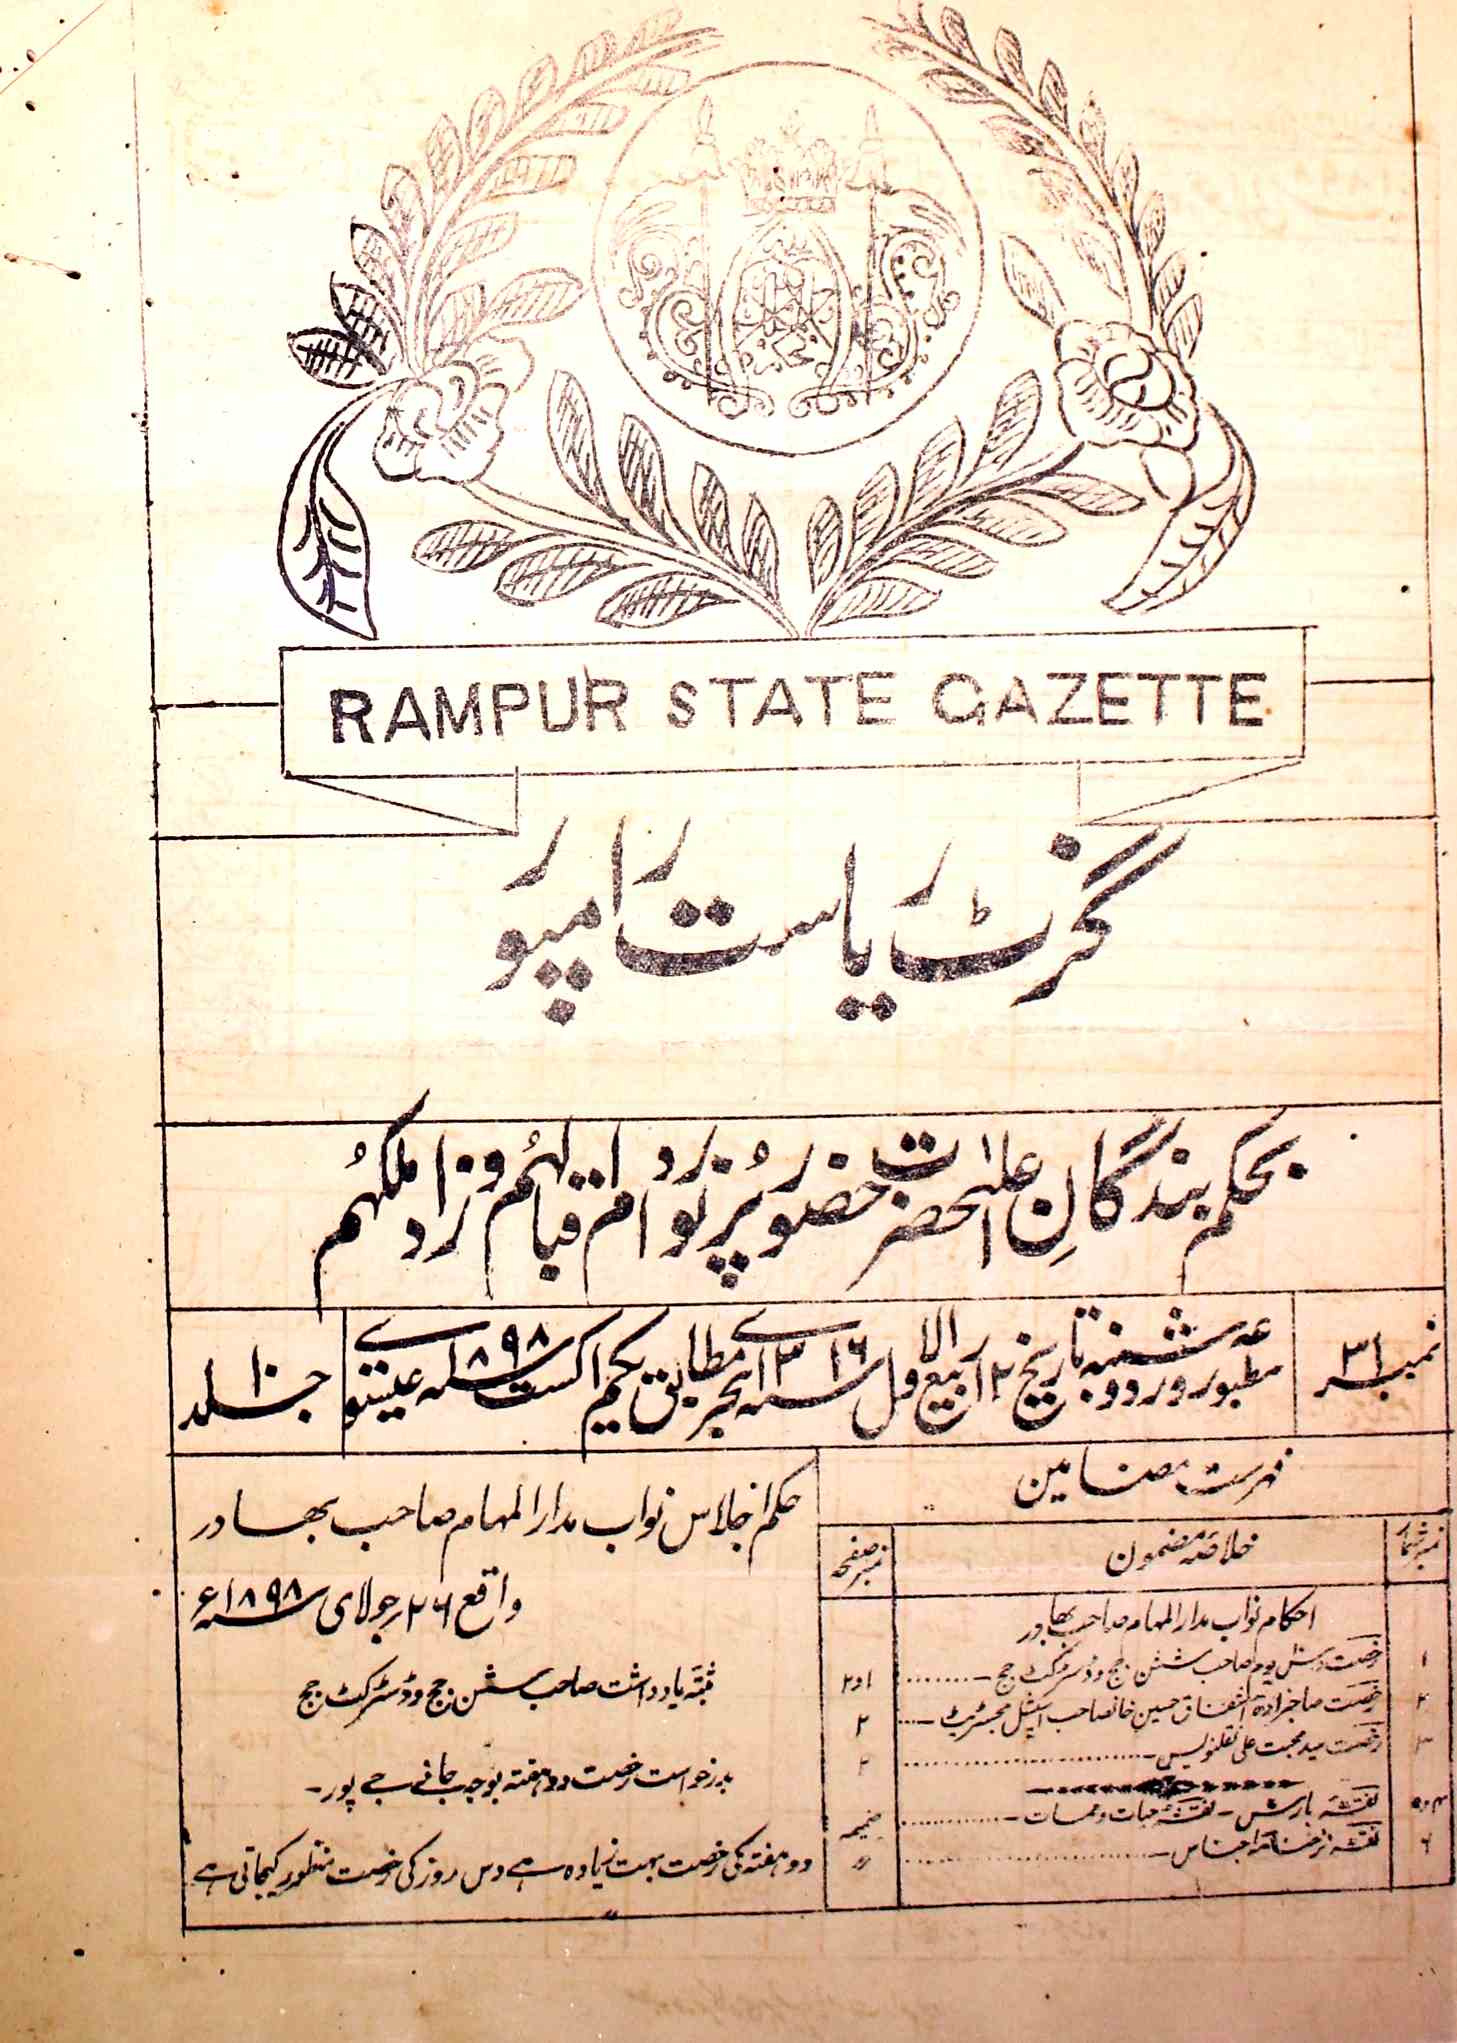 RAMPUR STATE GAZETTE
گزٹ ریاست رامپور
بحکم بندگانِ اعلیٰحضرت حضور پُرنور دام اقبالہُم وزاد ملکہُم
نمبر ۳۱
مطبوعہ روز دوشنبہ تاریخ ۱۲ ربیع الاول سنہ ۱۳۱۶ ہجری مطابق یکم اگست سنہ ۱۸۹۸ عیسوی
جلد ۱۰
فہرست مضامین
نمبر شمار خلاصہ مضمون نمبر صفحہ
احکام نواب مدارالمہام صاحب بہادر
۱ رخصت دس یوم صاحب سشن جج و ڈسٹرکٹ جج ۔ ......... ۱و۲
۲ رخصت صاحبزادہ اشفاق حسین خانصاحب اسپیشل مجسٹریٹ ۔ ... ۲
۳ رخصت سید محبت علی نقلنویس ۔ ......... ۲
۴و۵ نقشہ بارش ۔ نقشہ حیات و ممات ۔ ......... ضمیمہ
۶ نقشہ نرخنامہ اجناس ۔ ......... 〃
حکم اجلاس نواب مدارالمہام صاحب بہادر
واقع ۲۶ جولائی سنہ ۱۸۹۸ء
مثبتہ یادداشت صاحب سشن جج و ڈسٹرکٹ جج
بدرخواست رخصت دو ہفتہ بوجہ جانے جے پور ۔
دو ہفتہ کی رخصت بہت زیادہ ہے دس روز کی رخصت منظور کیجاتی ہے